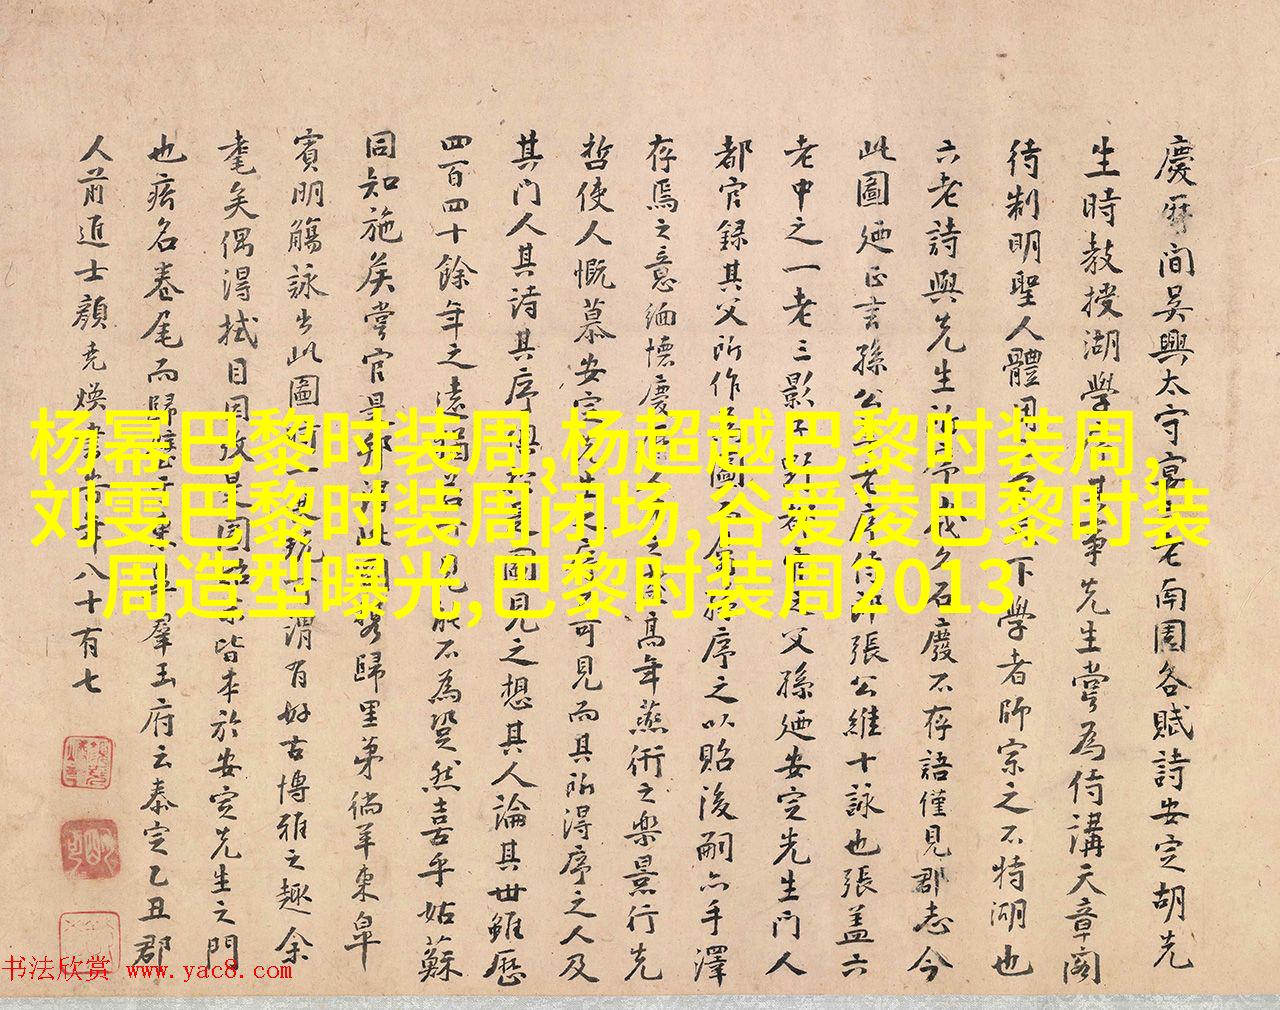 慶曆間吳興太守宴六老南園各賦詩安定胡先
生時教授湖學序其事先生嘗為侍講天章閣
待制明聖人體用下學者師宗之不特湖也
六老詩與先生所石廢不存語僅見郡志今
此圖廼正言孫公老序侍郎張公維十詠也張蓋六
老中之一老三影子野都官之父孫廼安定先生門人
都官錄其父所作圖序之以貽後嗣亦手澤
存焉之意緬懷慶之高年燕術之樂景行先
哲使人慨慕安定先生可見而其所得序之人及
其門人其詩其序圖見之想其人論其世雖歷
四百四十餘年之遠不為異然喜乎姑蘇
同知施侯嘗官是郡得此圖歸里第徜羊東皐
賓明觴詠出此圖謂有好古博雅之趣余
耄矣偶得拭目因攷是圖皆本於安定先生之門
也廁名卷尾而歸羣玉府云泰定乙丑郡
人前進士顏堯煥書時年八十有七
杨幂巴黎时装周,杨超越巴黎时装周,
刘雯巴黎时装周闭场,谷爱凌巴黎时装
周造型曝光,巴黎时装周2013
书法欣赏 www.yac8.com